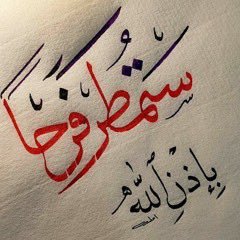 ستمطر فرحاً
بإذن الله